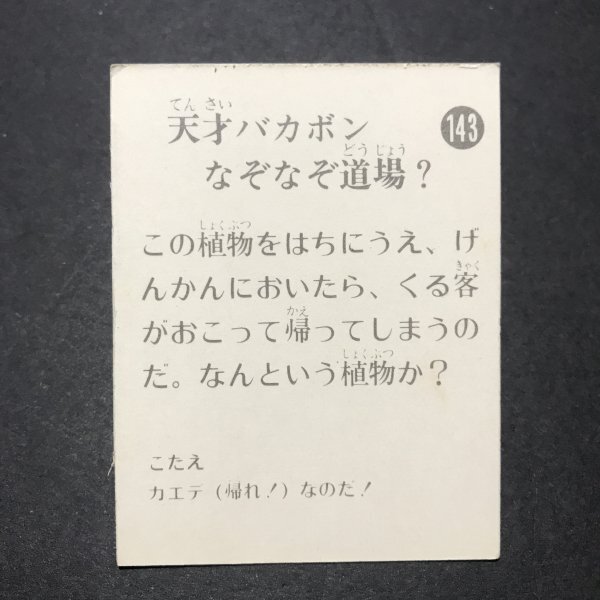 てんさい
天才バカボン
143
どうじょう
なぞなぞ道場？
しょくぶつ
この植物をはちにうえ、げ
きゃく
んかんにおいたら、くる客
かえ
がおこって帰ってしまうの
しょくぶつ
だ。なんという植物か？
こたえ
カエデ（帰れ！）なのだ！